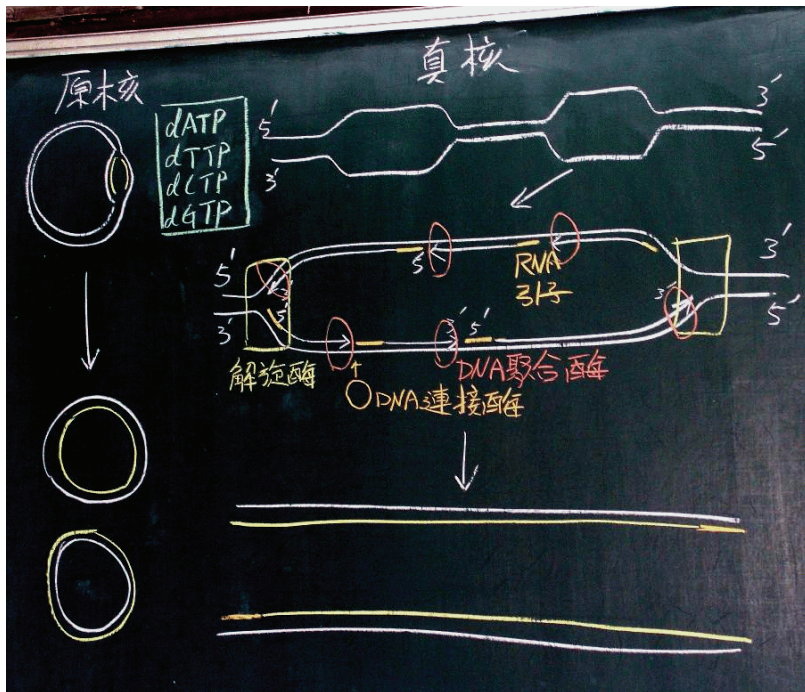 原核
真核
dATP
dTTP
dCTP
dGTP
5'
3'
3'
5'
5'
3'
5'
RNA
引子
3'
5'
3'
5'
3'
5'
3'
5'
解旋酶
DNA聚合酶
DNA連接酶